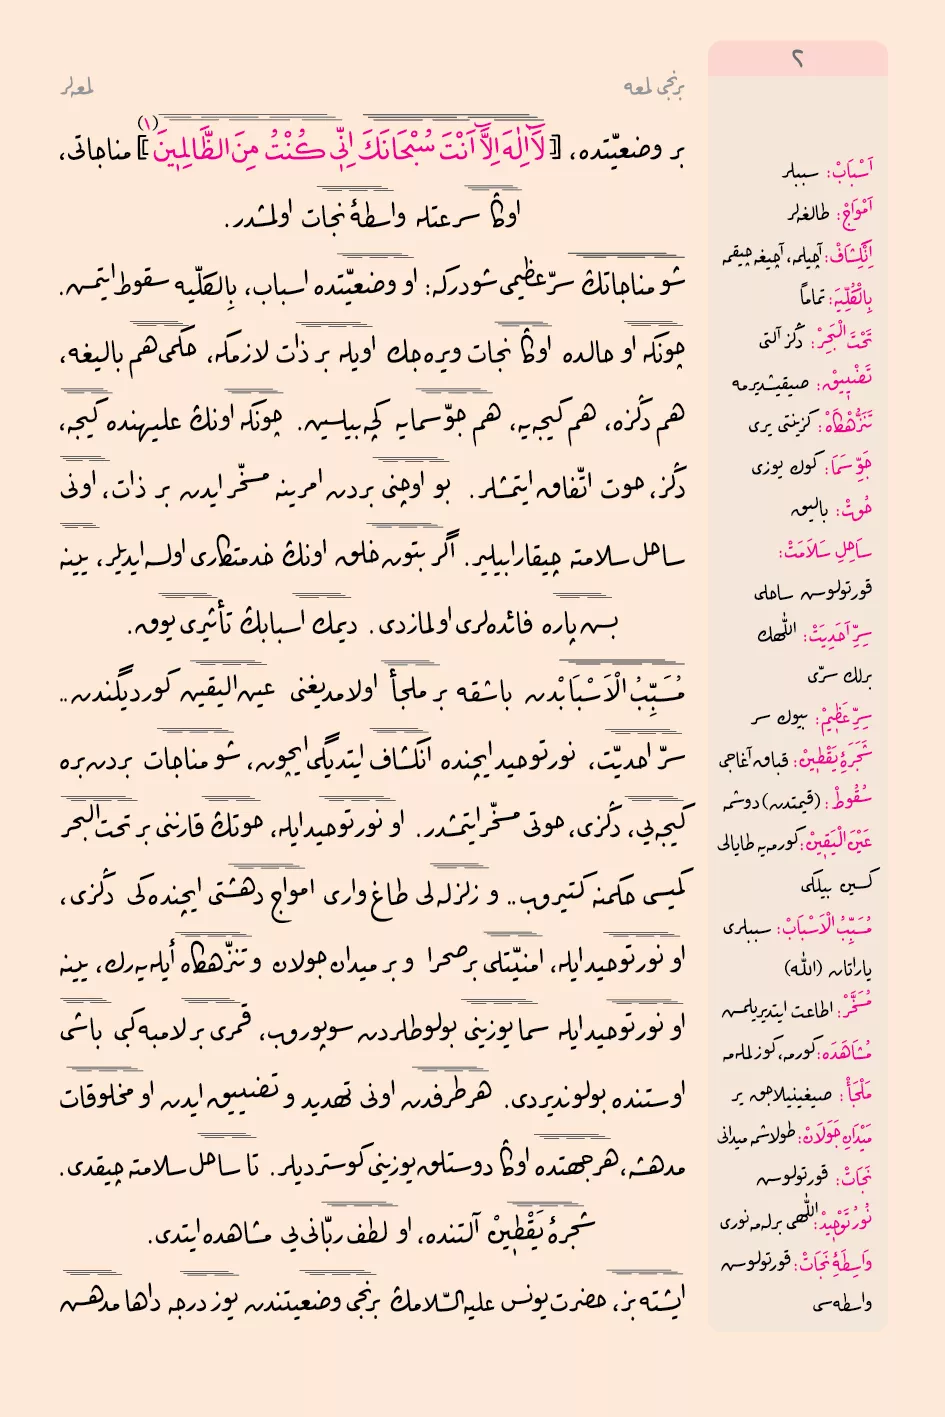 ٢
برنجی لمعه
لمعه‌لر
بر وضعیّتده، [لَٓا اِلٰهَ اِلَّٓا اَنْتَ سُبْحَانَكَ اِنّٖى كُنْتُ مِنَ الظَّالِمٖينَ](١) مناجاتی،
اوڭا سرعتله واسطۀ نجات اولمشدر.
شو مناجاتڭ سرّ عظیمی شودركه: او وضعیّتده اسباب، بِالكلّیه سقوط ایتمش.
چونكه او حالده اوڭا نجات ویره‌جك اویله بر ذات لازمكه، حكمی هم بالیغه،
هم دڭزه، هم كیجه‌یه، هم جوّ سمایه كچه‌بیلسین. چونكه اونڭ علیهنده كیجه،
دڭز، حوت اتّفاق ایتمشلر. بو اوچنی بردن امرینه مسخّر ایدن بر ذات، اونی
ساحل سلامته چیقارابیلیر. اگر بتون خلق اونڭ خدمتكاری اولسه ایدیلر، یینه
بش پاره فائده‌لری اولمازدی. دیمك اسبابڭ تأثیری یوق.
مُسَبِّبُ الْاَسْبَابْدن باشقه بر ملجأ اولامدیغنی عین الیقین كوردیگندن..
سرّ احدیّت، نور توحید ایچنده انكشاف ایتدیگی ایچون، شو مناجات بردن بره
كیجه‌یی، دڭزی، حوتی مسخّر ایتمشدر. او نور توحید ایله، حوتڭ قارننی بر تحت البحر
كمیسی حكمنه كتیروب.. و زلزله‌لی طاغ‌واری امواج دهشتی ایچنده‌كی دڭزی،
او نور توحید ایله، امنیّتلی بر صحرا و بر میدان جولان و تنزّهگاه أیله‌یه‌رك، یینه
او نور توحید ایله سما یوزینی بولوطلردن سوپوروب، قمری بر لامبه كبی باشی
اوستنده بولوندیردی. هر طرفدن اونی تهدید و تضییق ایدن او مخلوقات
مدهشه، هر جهتده اوڭا دوستلق یوزینی كوستردیلر. تا ساحل سلامته چیقدی.
شجرۀ یَقْطٖینْ آلتنده، او لطف ربّانی‌یی مشاهده ایتدی.
ایشته بز، حضرت یونس علیه السّلامڭ برنجی وضعیتندن یوز درجه داها مدهش
اَسْبَابْ: سببلر
اَمْوَاجْ: طالغه‌لر
اِنْكِشَافْ: آچیلمه، آچیغه چیقمه
بِالْكُلِّيَه: تماماً
تَحْتَ الْبَحِرْ: دڭز آلتی
تَضْيٖيقْ: صیقیشدیرمه
تَنَزُّهْگَاهْ: كزینتی یری
جَوِّ سَمَا: كوك یوزی
حُوتْ: بالیق
سَاحِلِ سَلَامَتْ:
قورتولوش ساحلی
سِرِّ اَحَدِيَتْ: اللّٰهڭ
برلك سرّی
سِرِّ عَظٖيمْ: بیوك سر
شَجَرَۀِ يَقْطٖينْ: قباق آغاجی
سُقُوطْ: (قیمتدن) دوشمه
عَيْنَ الْيَقٖينْ: كورمه‌یه طایالی
كسین بیلكی
مُسَبِّبُ الْاَسْبَابْ: سببلری
یاراتان (اللّٰه)
مُسَخَّرْ: اطاعت ایتدیریلمش
مُشَاهَدَه: كورمه، كوزلمله‌مه
مَلْجَأْ: صیغینیلاجق یر
مَيْدَانِ جَوَلَانْ: طولاشمه میدانی
نَجَاتْ: قورتولوش
نُورُ تَوْحٖيدْ: اللّٰهی برله‌مه نوری
وَاسِطَۀِ نَجَاتْ: قورتولوش
واسطه‌سی